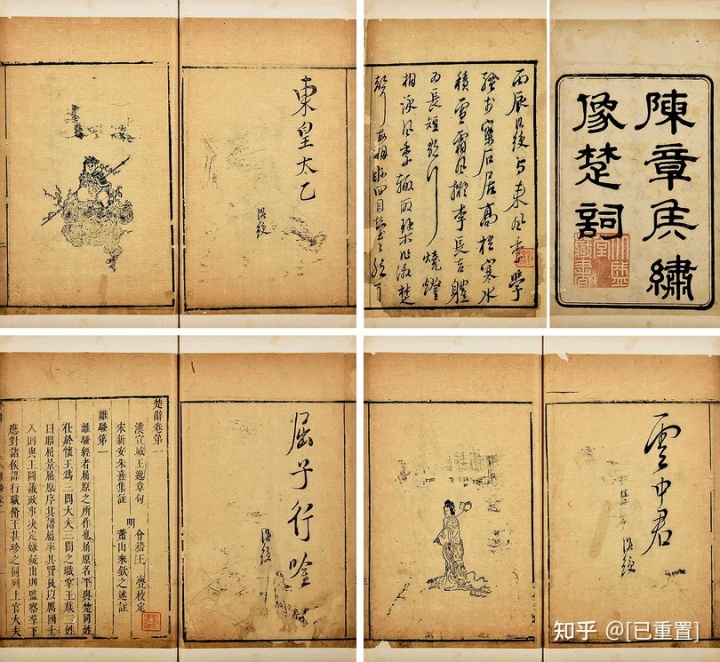 東皇太乙
洪綬
陳章侯繡
像楚詞
丙辰洪綬與來風季學
騷於搴石居高梧寒水
積雪霜風擬李長吉體
為長短歌行燒燈
相詠風季輒取琴作激楚
聲每相視四目瑩瑩然耳
屈子行吟
洪綬
楚辭卷第一
漢宣城王逸章句
宋新安朱熹集註
明
會稽王亹校定
蕭山來欽之述註
離騷第一
離騷經者屈原之所作也屈原名平與楚同姓
仕於懷王為三閭大夫三閭之職掌王族三姓
曰昭屈景屈原序其譜屬率其賢良以厲國士
入則與王圖議政事決定嫌疑出則監察羣下
應對諸侯謀行職脩王甚珍之同列上官大夫
雲中君
洪綬
知乎 @[已重置]